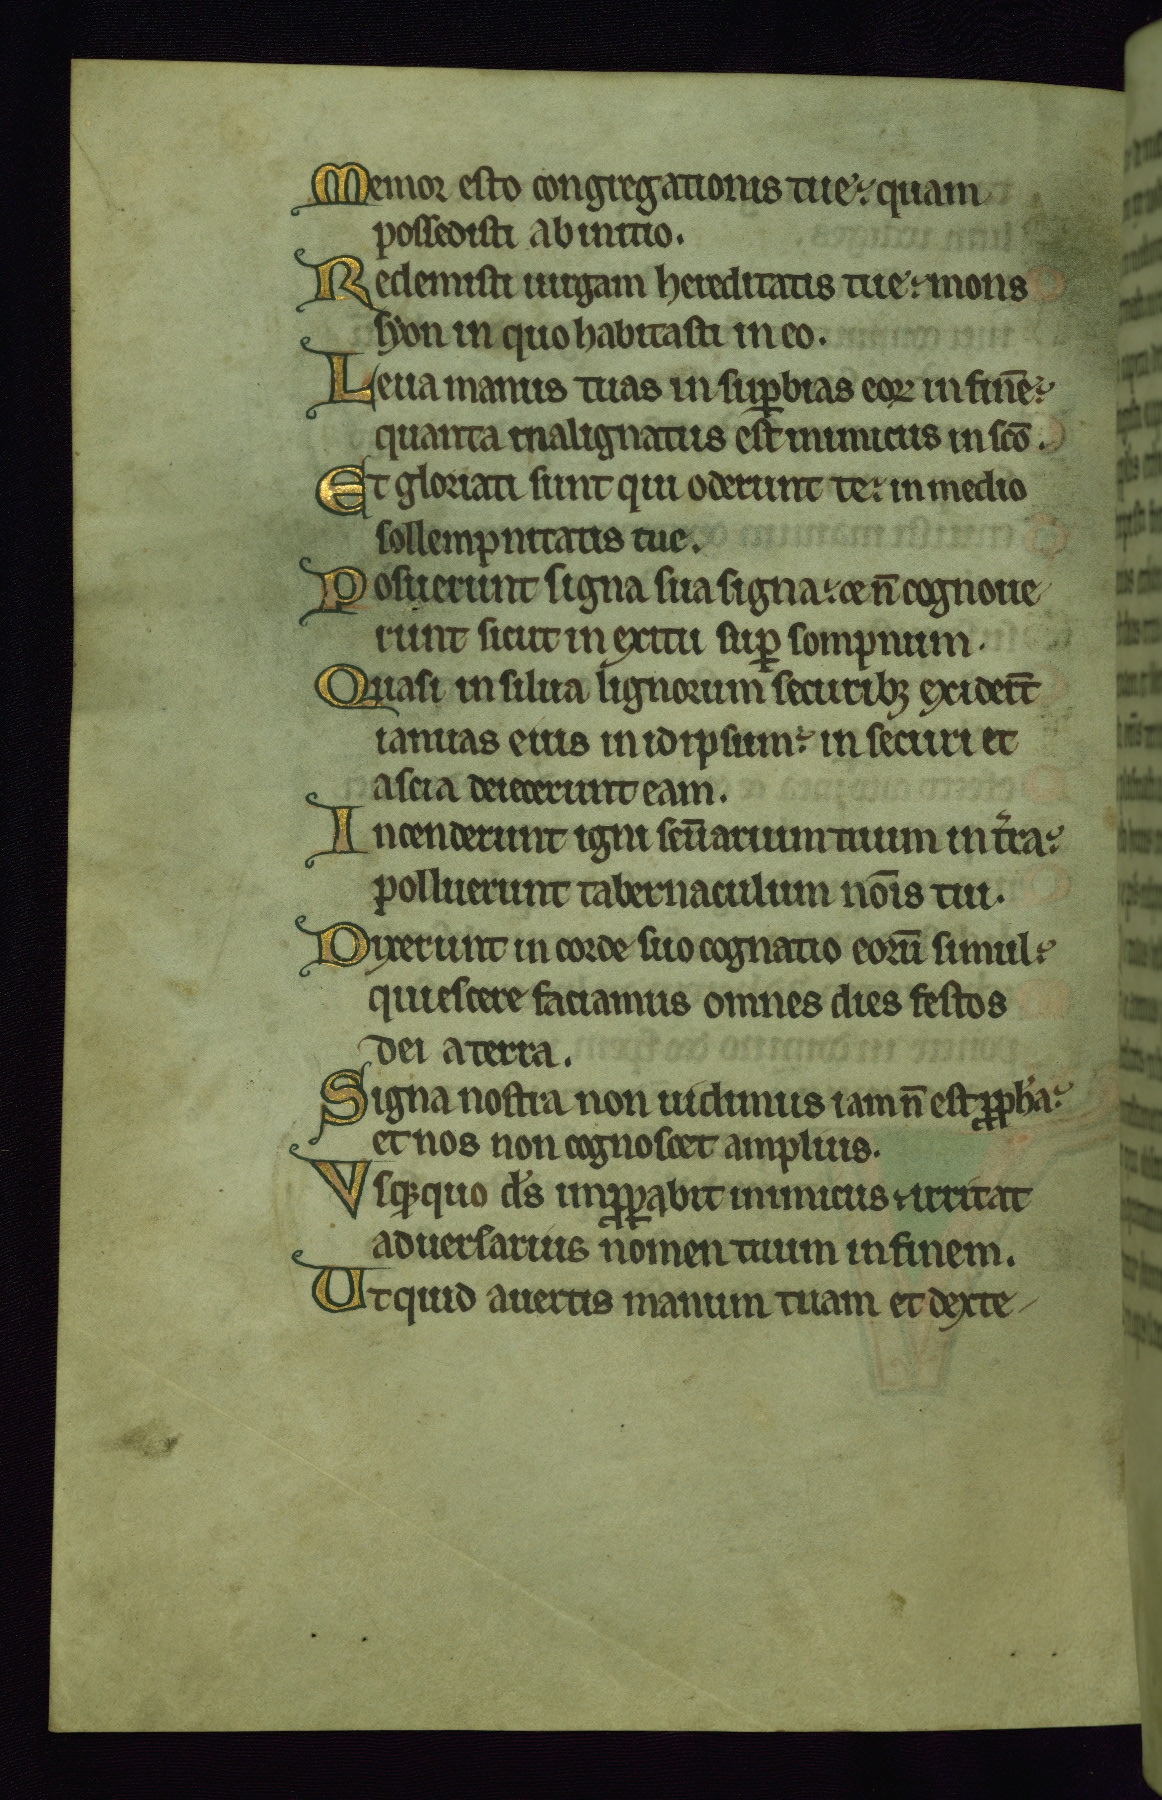 Memor esto congregationis tue: quam
possedisti ab initio.
Redemisti uirgam hereditatis tue: mons
syon in quo habitasti in eo.
Leua manus tuas in sup̱bias eoꝝ in finē:
quanta malignatus est inimicus in scō.
Et gloriati sunt qui oderunt te: in medio
sollempnitatis tue.
Posuerunt signa sua signa: ⁊ n̄ cognoue
runt sicut in exitu suꝑ sompnum.
Quasi in silua lignorum securibꝫ exiderūt
ianuas eius in idipsum: in securi et
ascia deiecerunt eam.
Incenderunt igni scūarium tuum in t̄ra:
polluerunt tabernaculum nōis tui.
Dixerunt in corde suo cognatio eorū simul:
quiescere faciamus omnes dies festos
dei a terra.
Signa nostra non uidimus iam n̄ est ꝓph̄a:
et nos non cognoscet amplius.
Vsqꝫquo d̄s imꝓꝑabit inimicus: irritat
aduersarius nomen tuum in finem.
Vt quid auertis manum tuam et dexte